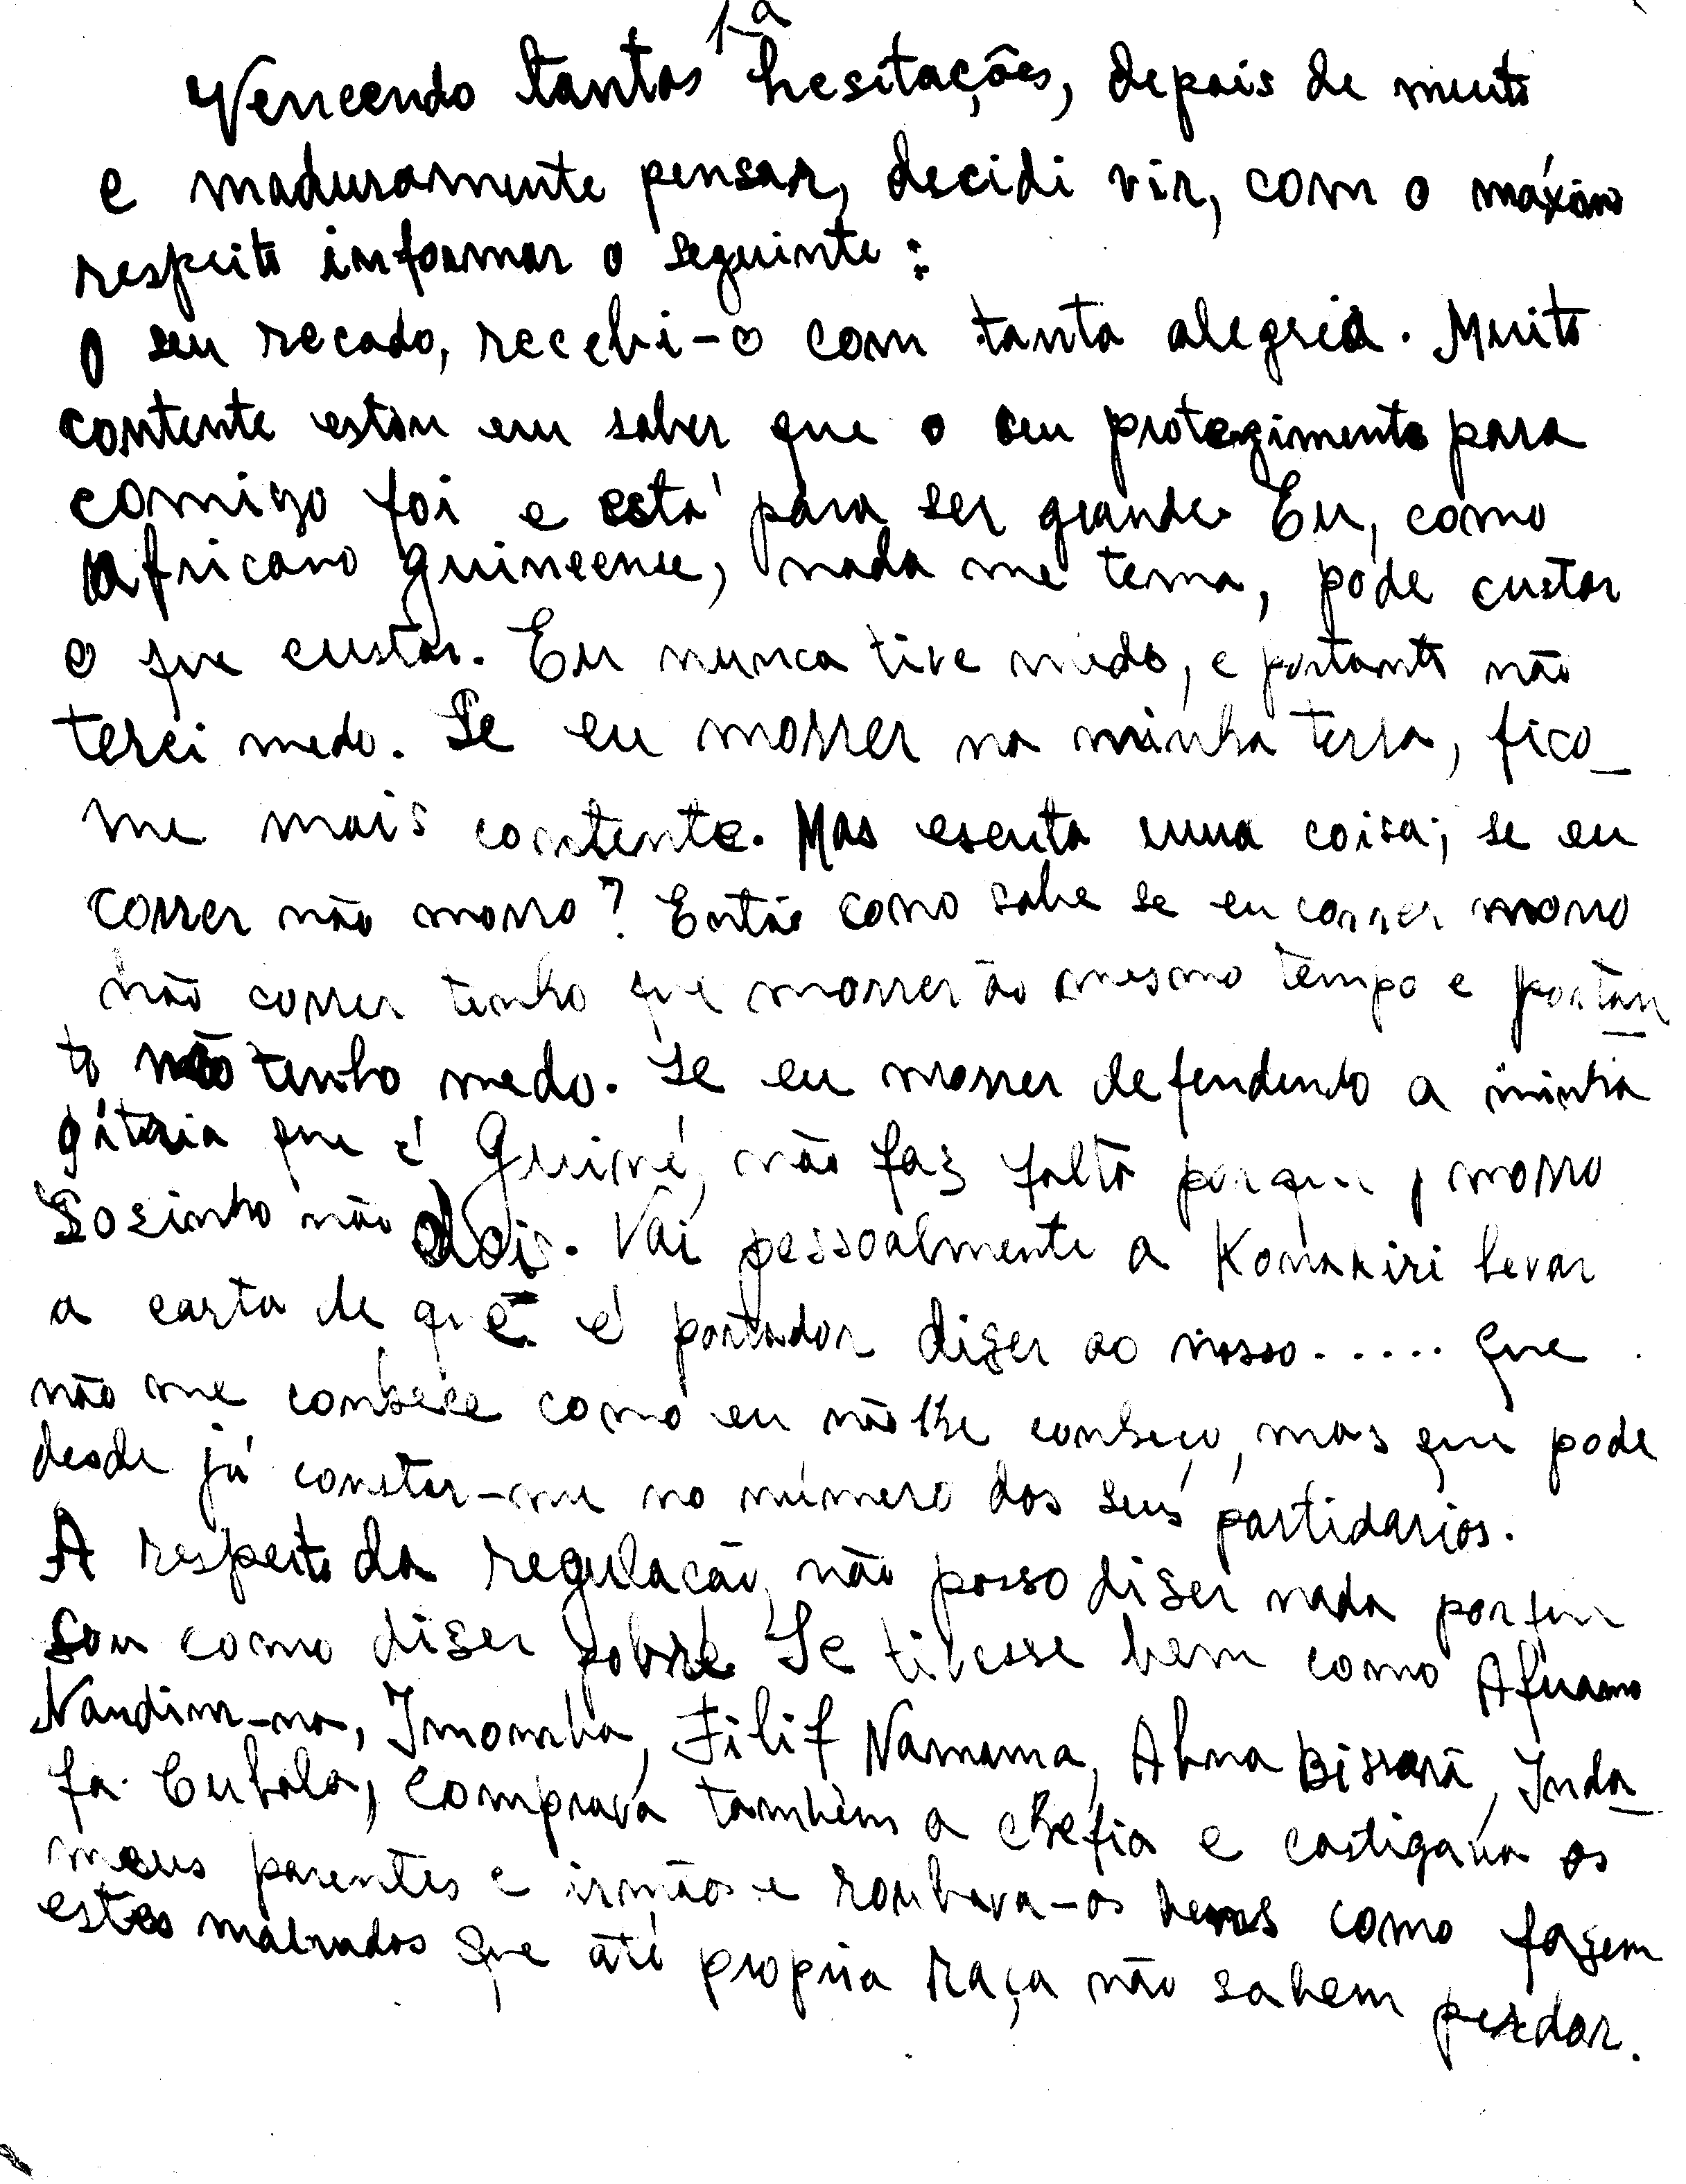 1ª
Vencendo tantas hesitações, depois de muito
e maduramente pensar, decidi vir, com o máximo
respeito informar o seguinte:
O seu recado, recebi-o com tanta alegria. Muito
contente estou em saber que o seu protegimento para
comigo foi e está para ser grande. Eu, como
africano guineense, nada me tema, pode custar
o que custar. Eu nunca tive medo, e portanto não
terei medo. Se eu morrer na minha terra, fico_
me mais contente. Mas escuta uma coisa; se eu
correr não morro? Então como sabe se eu correr morro
não correr tenho que morrer ão mesmo tempo e portan
to não tenho medo. Se eu morrer defendendo a minha
pátria que é Guiné, não faz falta porque, morro
Sozinho não dois. Vai pessoalmente a Konakiri levar
a carta de que é portador dizer ao nosso..... que
não me conhece como eu não lhe conheço, mas que pode
desde já constar-me no número dos seus partidarios.
A respeito da regulacão, não posso dizer nada porque
sou como dizer pobre. Se tivesse bem como Afuamo
Nandim-na, Imomba, Filif Namama, Abna Bissorã, Inda_
fa Cubala, comprava também a chefia e castigava os
meus parentes e irmãos e roubava-os bens como fazem
estes malvados que até propria raça não sabem perdoar.